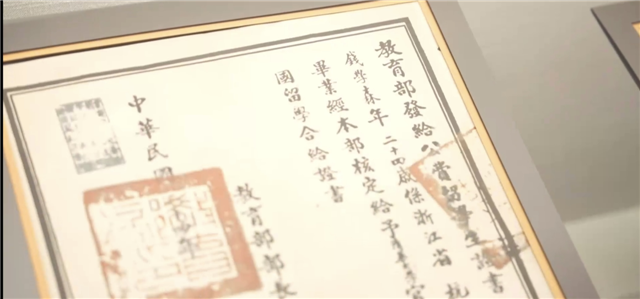 教育部發給公費留學生證書
錢學森年二十四歲係浙江省杭
畢業經本部核定給予
國留學合給證書
教育部部長
中華民國